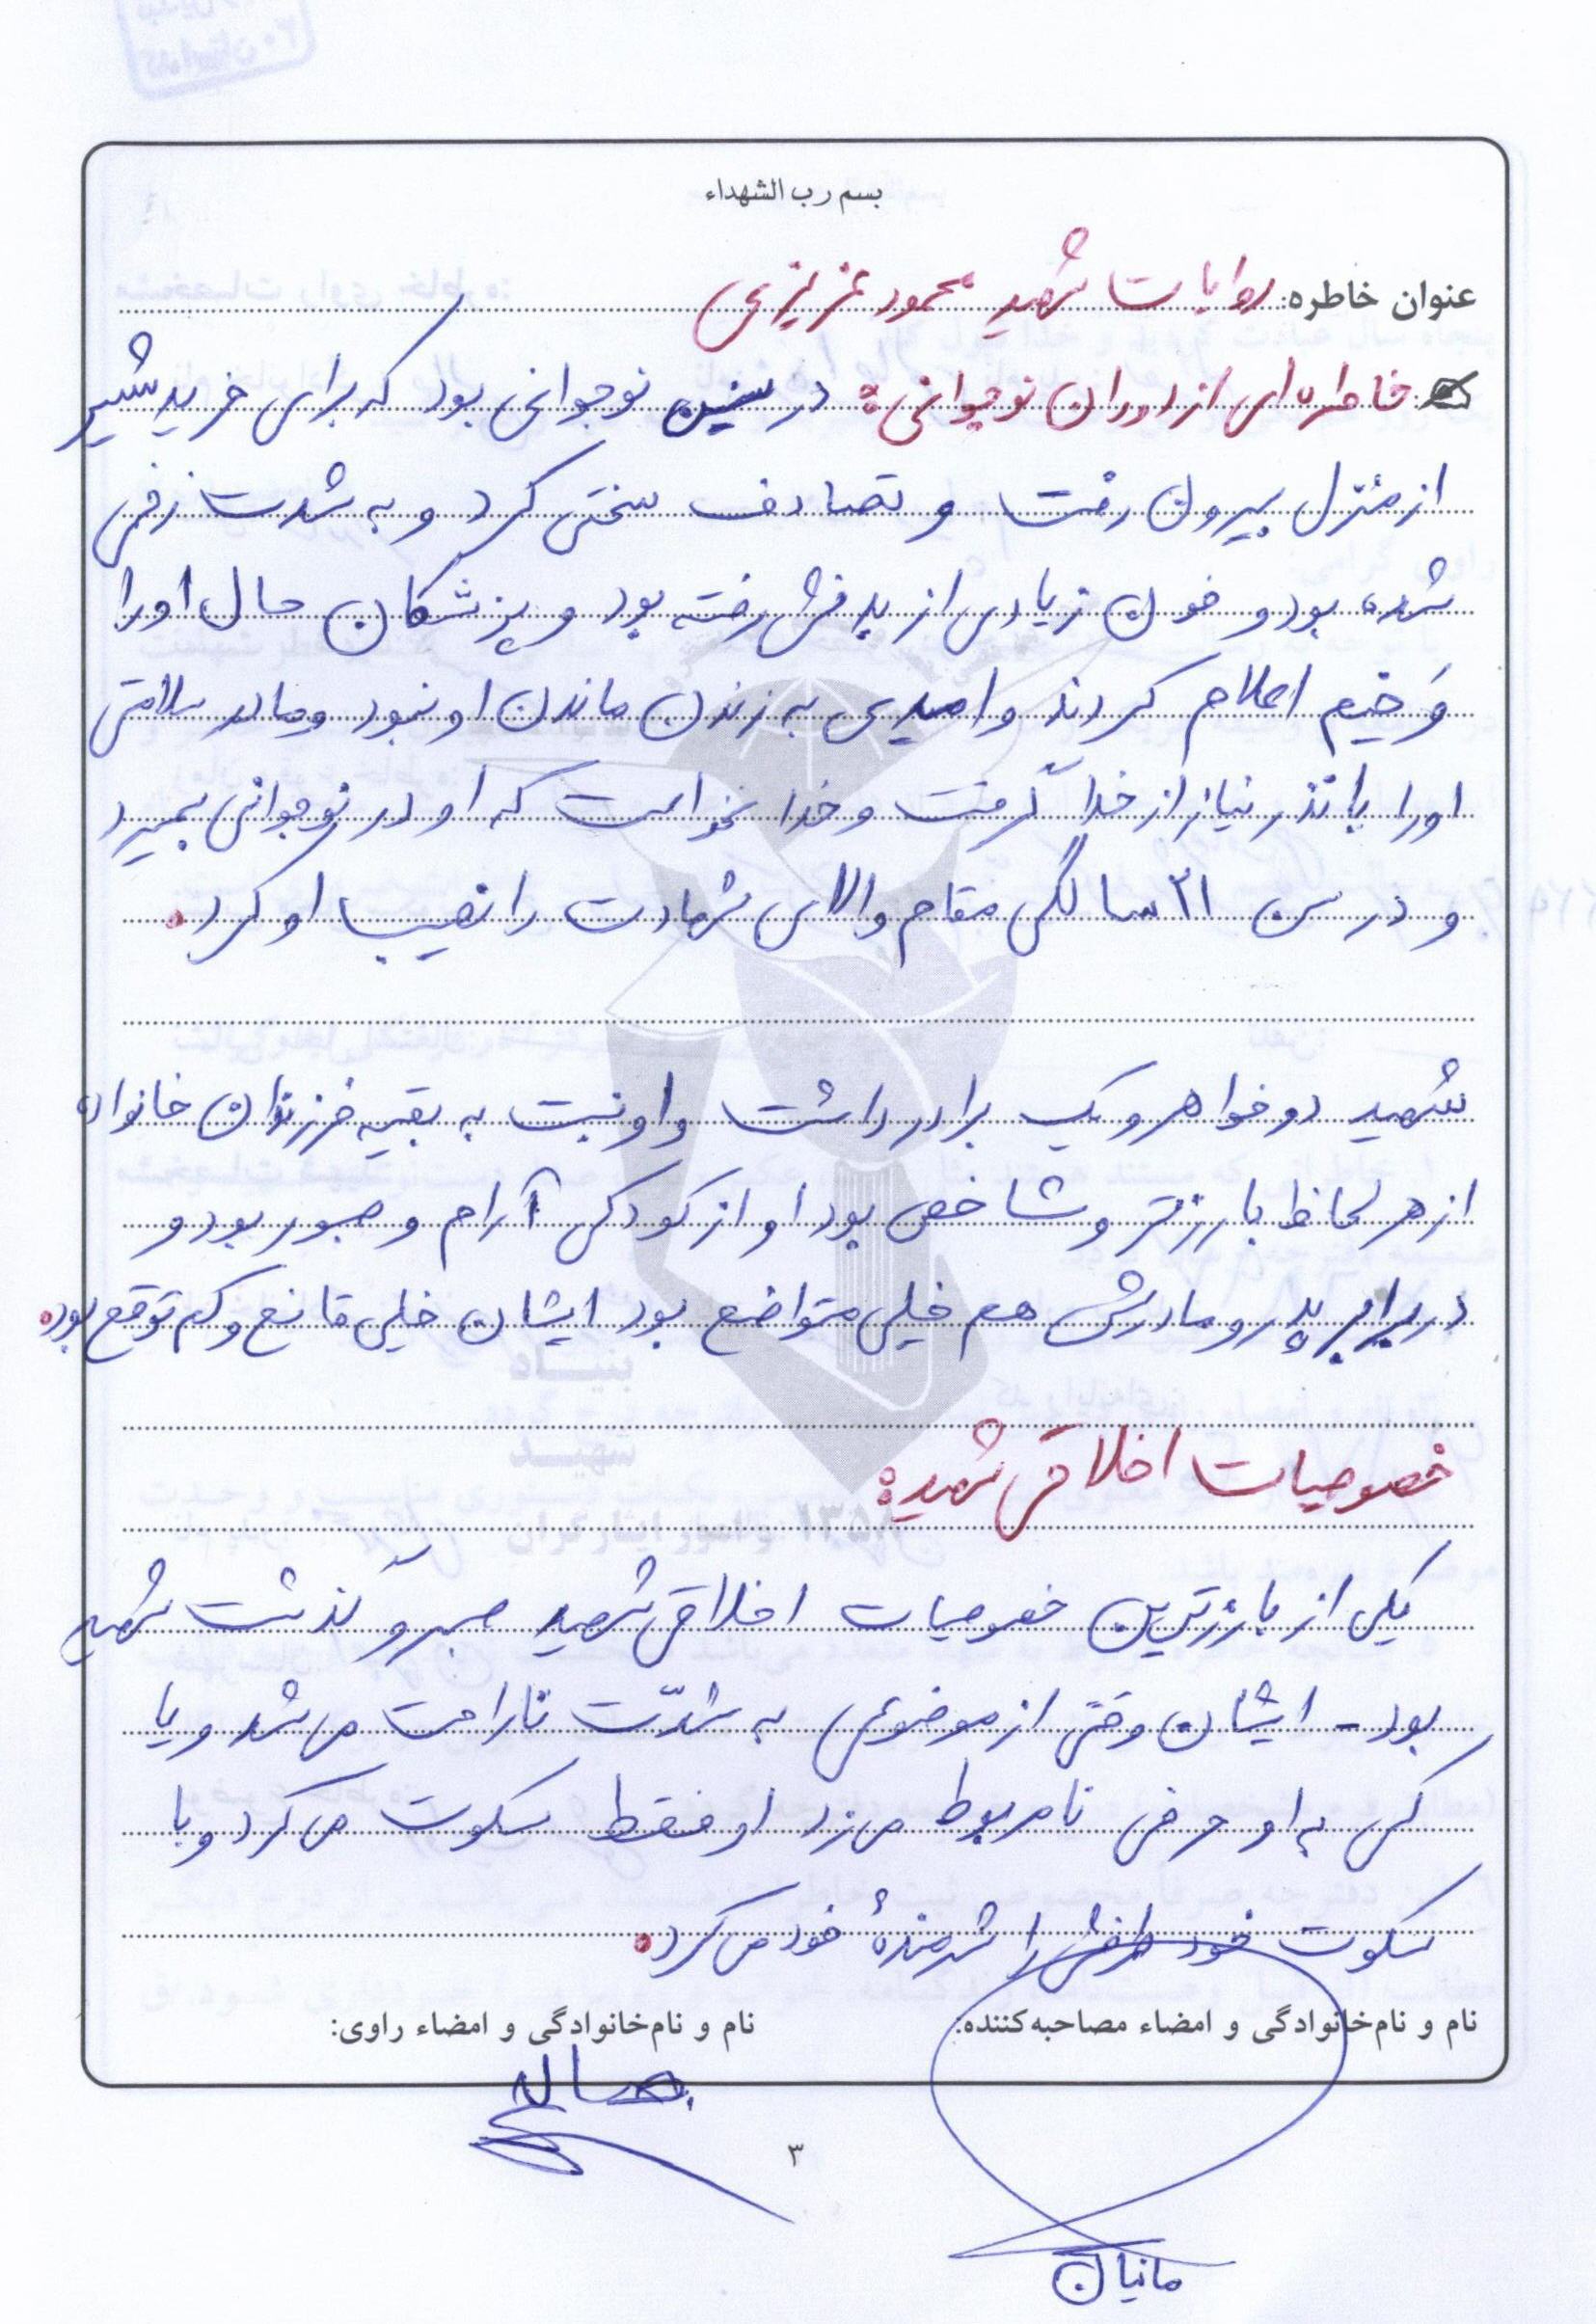 بسم رب الشهداء
عنوان خاطره: روایات شهید محمود عزیزی
خاطره ای از دوران نوجوانی: در سنین نوجوانی بود که برای خرید شیر
از منزل بیرون رفت و تصادف سختی کرد و به شدت زخمی
شده بود و خون زیادی از بدنش رفته بود و پزشکان حال او را
وَخیم اعلام کردند و امیدی به زنده ماندن او نبود و مادر سلامتی
او را با نذر نیاز از خدا گرفت و خدا نخواست که او در نوجوانی بمیرد
و در سن ۲۱ سالگی مقام والای شهادت را نصیب او کرد.
شهید دو خواهر و یک برادر داشت و او نسبت به بقیه فرزندان خانواده
از هر لحاظ بارزتر و شاخص بود او از کودکی آرام و صبور بود و
در برابر پدر و مادرش هم خیلی متواضع بود ایشان خیلی قانع و کم توقع بود.
خصوصیات اخلاقی شهید:
یکی از بارزترین خصوصیات اخلاقی شهید صبر و گذشت شهید
بود - ایشان وقتی از موضوعی به شدّت ناراحت می شد و یا
کسی به او حرفی نامربوط می زد او فقط سکوت می کرد و با
سکوت خود طرفش را شرمندهٔ خود می کرد.
نام و نام‌خانوادگی و امضاء مصاحبه‌کننده: نام و نام‌خانوادگی و امضاء راوی:
صالح
۳
مانیان